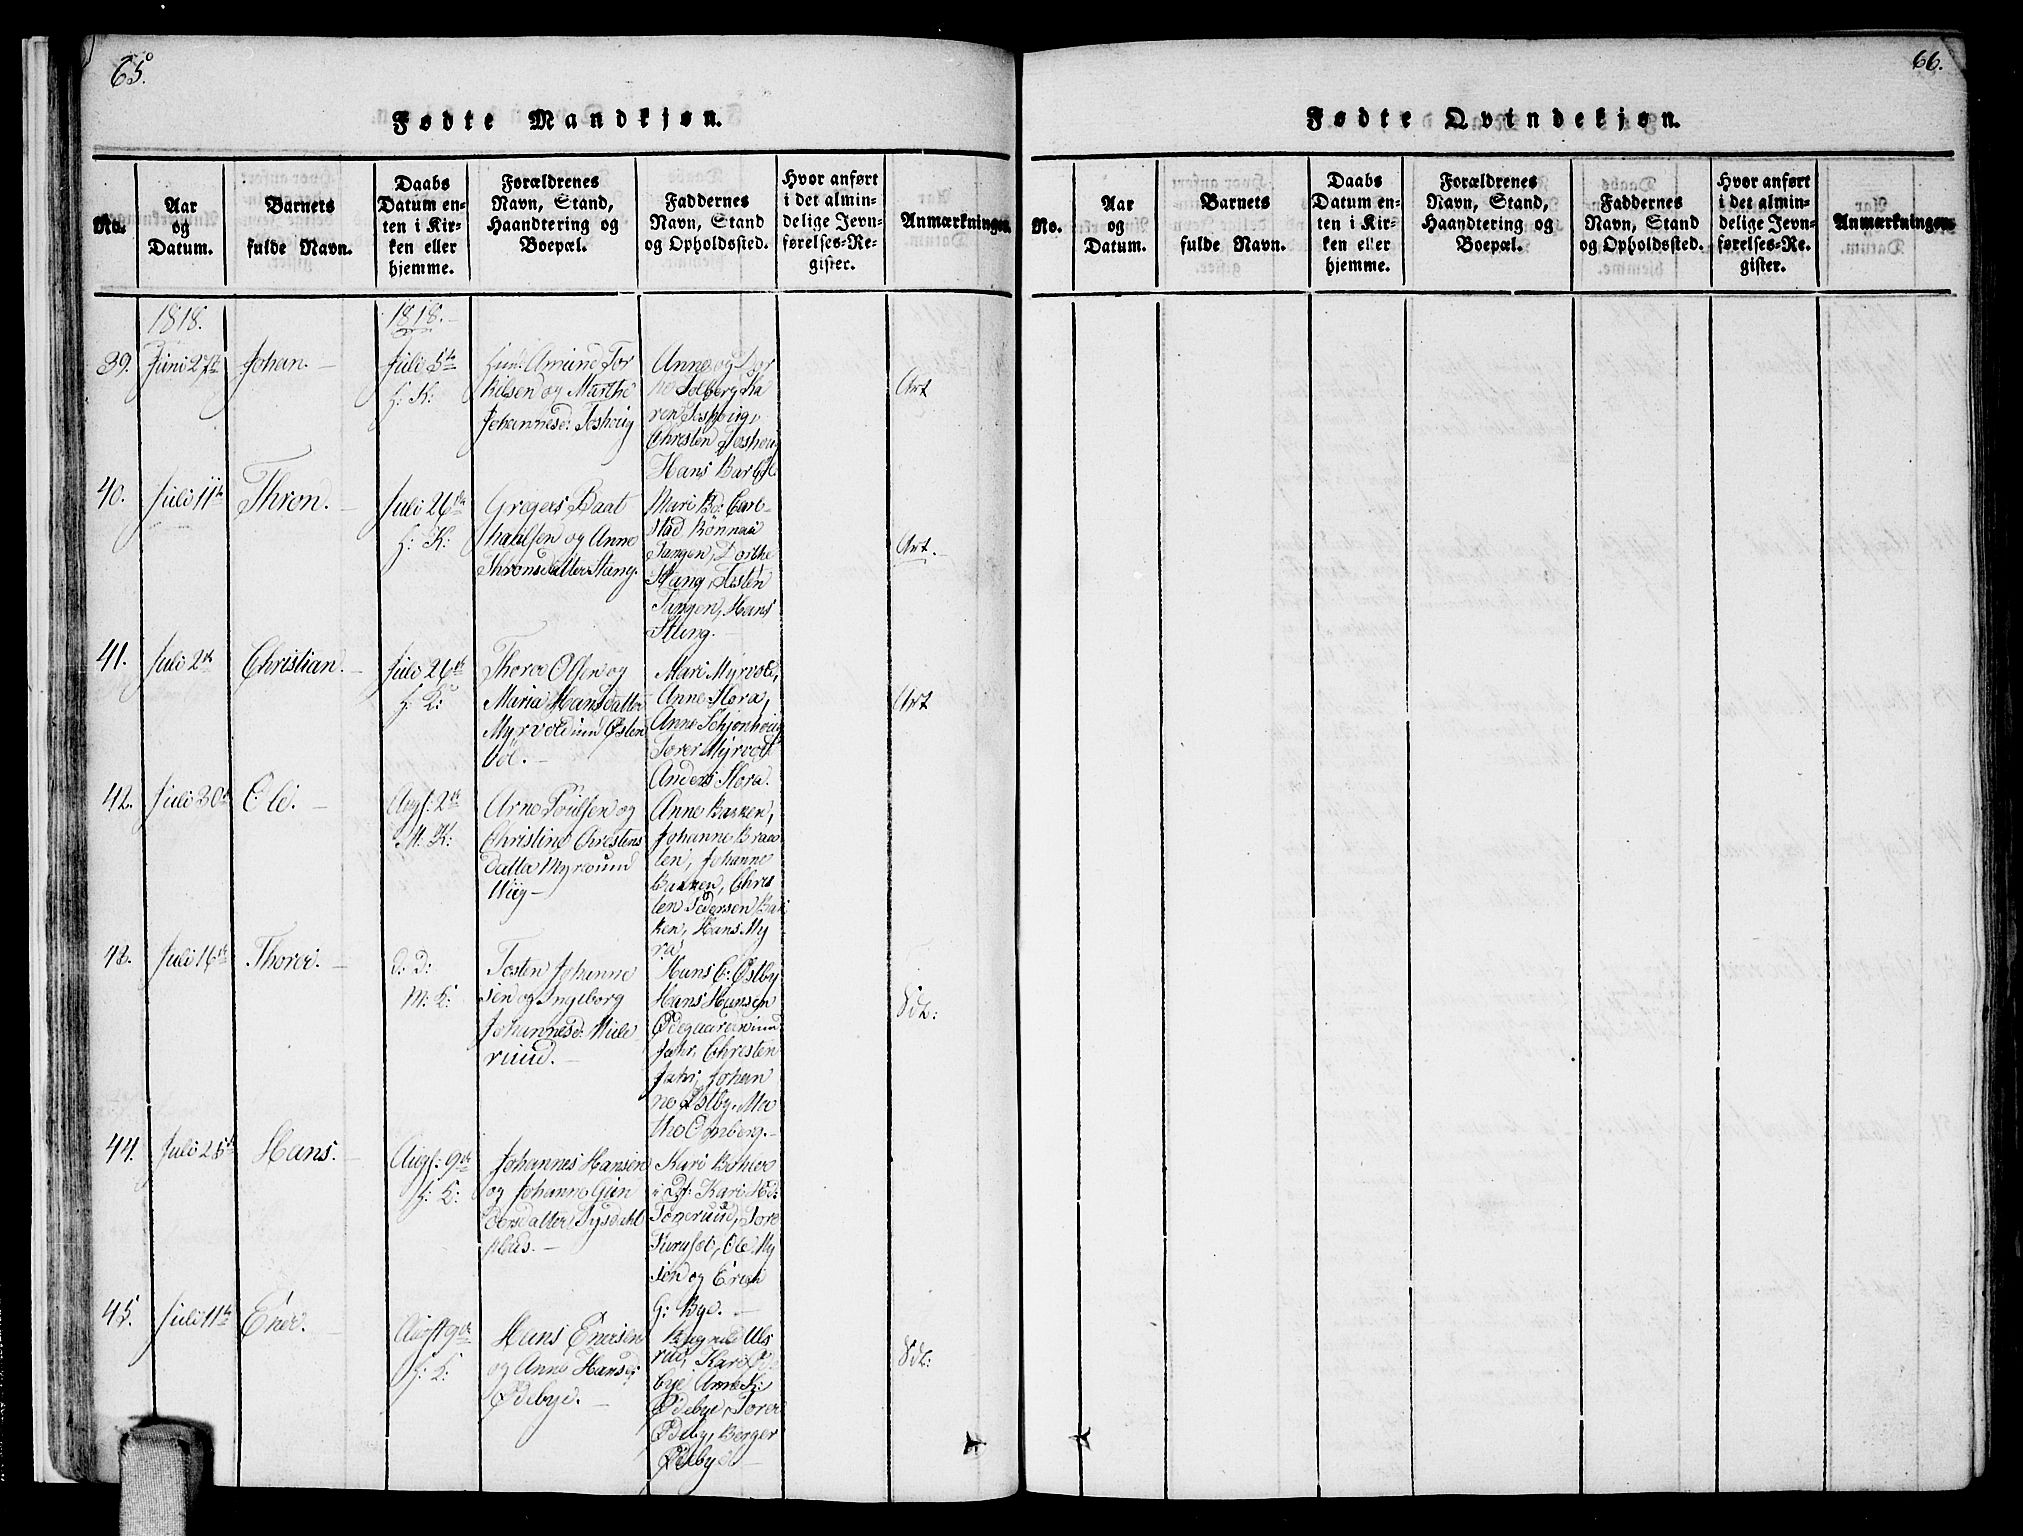 65.
Fødte Mandkjøn.
No.
Aar
og
Datum.
Barnets
fulde Navn.
Daabs
Datum en-
ten i Kir-
ken eller
hjemme.
Forældrenes
Navn, Stand,
Haandtering og
Boepæl.
Faddernes
Navn, Stand
og Opholdssted.
Hvor anført
i det almin-
delige Jevn-
førelses-Re-
gister.
Anmærkninger.
1818.
1818.
39.
Juni 27de
Johan.
Juli 5te
H: K:
Amund Tor
kilsen og Marthe
Johannesd: Toshoug
Anne og
Solberg, Ka
ren Toshoug,
Christen Toshoug
Hans Barbøl
Art
40.
Juli 11te
Thron.
Juli 26de
H: K:
Gregers Baat
haulsen og Anne
Thronsdatter Stang.
Mari Bø: Carl-
stad
Tangen, Dorthe
Stang, Testen
Tangen, Hans
Stang.
Art.
41.
Juli 2de
Christian.
Juli 26de
H: K:
Thorer Olsen og
Maria Hansdatter
Myrvold und Østen
Vol.
Mari Myrvold,
Anne Flora,
Anne Schjønhoug
Torer Myrvold
Anders Flora.
Art
42.
Juli 30te
Ole.
Aug: 2de
M: K:
Arne Poulsen og
Christine Christens
datter Myra und
Wiig
Anne Bakken,
Johanne Braa
ten, Johanne
Bakken, Chris
ten Pedersen Bak
ken, Hans My
ra
43.
Juli 16de
Thorer.
d: D:
M: K:
Testen Johanne
sen og Ingeborg
Johannesd:
ruud.
Hans C: Østby
Hans Hansen
Ødegaarden und
Jahr, Christen
Jahr, Johan
ne Østby, Mar
the
Vdl:
44.
Juli 25de
Hans.
Aug: 9de
H: K:
Johannes Hansen
og Johanne Gun
dersdatter
Kari
Kari H:
Tonerud, Tore
Furuset, Ole My
sen og
G: Bye.
45.
Juli 11te
Ener.
Aug: 9de
H: K:
Hans Enersen
og Anne Hansd:
Ødebye.
rud, Kari Øde
bye Anne K:
Ødebye, Torer
Ødeby, Berger
Ødeby
Vdl:
66.
Fødte Qvindekjøn.
No.
Aar
og
Datum.
Barnets
fulde Navn.
Daabs
Datum en-
ten i Kir-
ken eller
hjemme.
Forældrenes
Navn, Stand,
Haandtering og
Boepæl.
Faddernes
Navn, Stand
og Opholdssted.
Hvor anført
i det almin-
delige Jevn-
førelses-Re-
gister.
Anmærkninger.